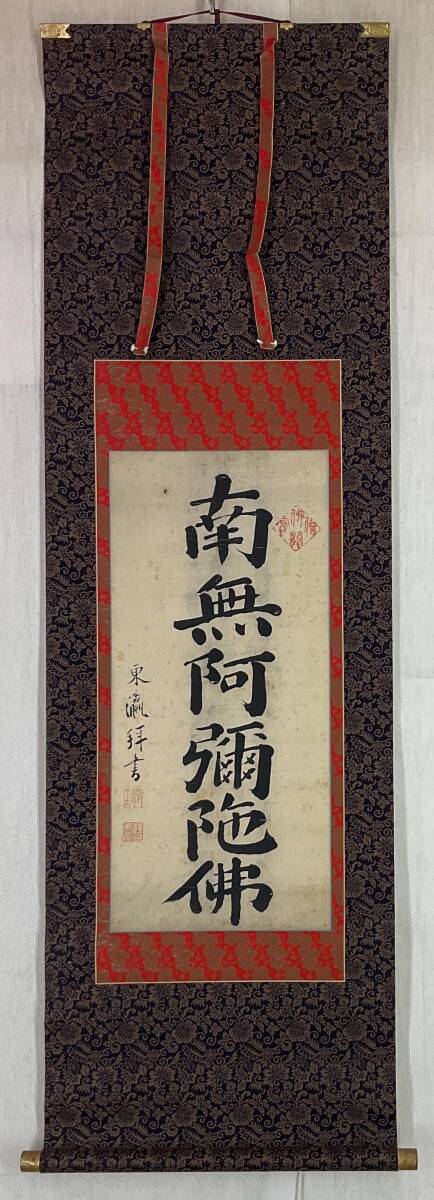 南無阿彌陀佛
東瀛拜書